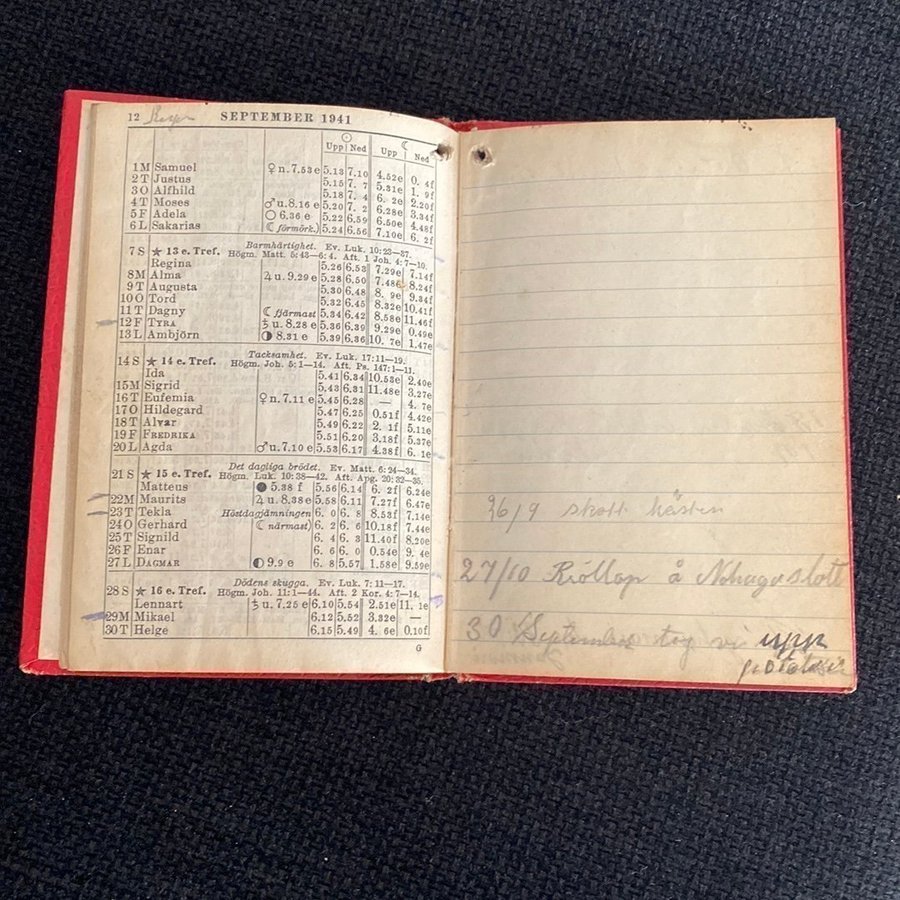 12 SEPTEMBER 1941
☉ ☾
Upp Ned Upp Ned
1 M Samuel ♀ n. 7.53 e 5.13 7.10 4.52e 0. 4f
2 T Justus 5.15 7. 7 5.31e 1. 9f
3 O Alfhild 5.18 7. 4 6. 2e 2.20f
4 T Moses ♂ u. 8.16 e 5.20 7. 2 6.28e 3.34f
5 F Adela ○ 6.36 e 5.22 6.59 6.50e 4.48f
6 L Sakarias ☾ förmörk.) 5.24 6.56 7.10e 6. 2f
7 S ★ 13 e. Tref. Barmhärtighet. Ev. Luk. 10:23—37.
Högm. Matt. 5:43—6:4. Aft. 1 Joh. 4:7—10.
Regina 5.26 6.53 7.29e 7.14f
8 M Alma ♃ u. 9.29 e 5.28 6.50 7.48e 8.24f
9 T Augusta 5.30 6.48 8. 9e 9.34f
10 O Tord 5.32 6.45 8.32e 10.41f
11 T Dagny ☾ fjärmast 5.34 6.42 8.58e 11.46f
12 F TYRA ♄ u. 8.28 e 5.36 6.39 9.29e 0.49e
13 L Ambjörn ◑ 8.31 e 5.39 6.36 10. 7e 1.47e
14 S ★ 14 e. Tref. Tacksamhet. Ev. Luk. 17:11—19.
Högm. Joh. 5:1—14. Aft. Ps. 147:1—11.
Ida 5.41 6.34 10.53e 2.40e
15 M Sigrid 5.43 6.31 11.48e 3.27e
16 T Eufemia ♀ n. 7.11 e 5.45 6.28 — 4. 7e
17 O Hildegard 5.47 6.25 0.51f 4.42e
18 T Alvar 5.49 6.22 2. 1f 5.11e
19 F FREDRIKA 5.51 6.20 3.18f 5.37e
20 L Agda ♂ u. 7.10 e 5.53 6.17 4.38f 6. 1e
21 S ★ 15 e. Tref. Det dagliga brödet. Ev. Matt. 6:24—34.
Högm. Luk. 10:38—42. Aft. Apg. 20:32—35.
Matteus ● 5.38 f 5.56 6.14 6. 2f 6.24e
22 M Maurits ♃ u. 8.38 e 5.58 6.11 7.27f 6.47e
23 T Tekla Höstdagjämningen 6. 0 6. 8 8.53f 7.14e
24 O Gerhard ☾ närmast) 6. 2 6. 6 10.18f 7.44e
25 T Signild 6. 4 6. 3 11.40f 8.20e
26 F Enar 6. 6 6. 0 0.54e 9. 4e
27 L DAGMAR ◐ 9.9 e 6. 8 5.57 1.58e 9.59e
28 S ★ 16 e. Tref. Dödens skugga. Ev. Luk. 7:11—17.
Högm. Joh. 11:1—44. Aft. 2 Kor. 4:7—14.
Lennart ♄ u. 7.25 e 6.10 5.54 2.51e 11. 1e
29 M Mikael 6.12 5.52 3.32e —
30 T Helge 6.15 5.49 4. 6e 0.10f
G
26/9 skott hästen
27/10 å slott
30 September tog vi upp
potatisen